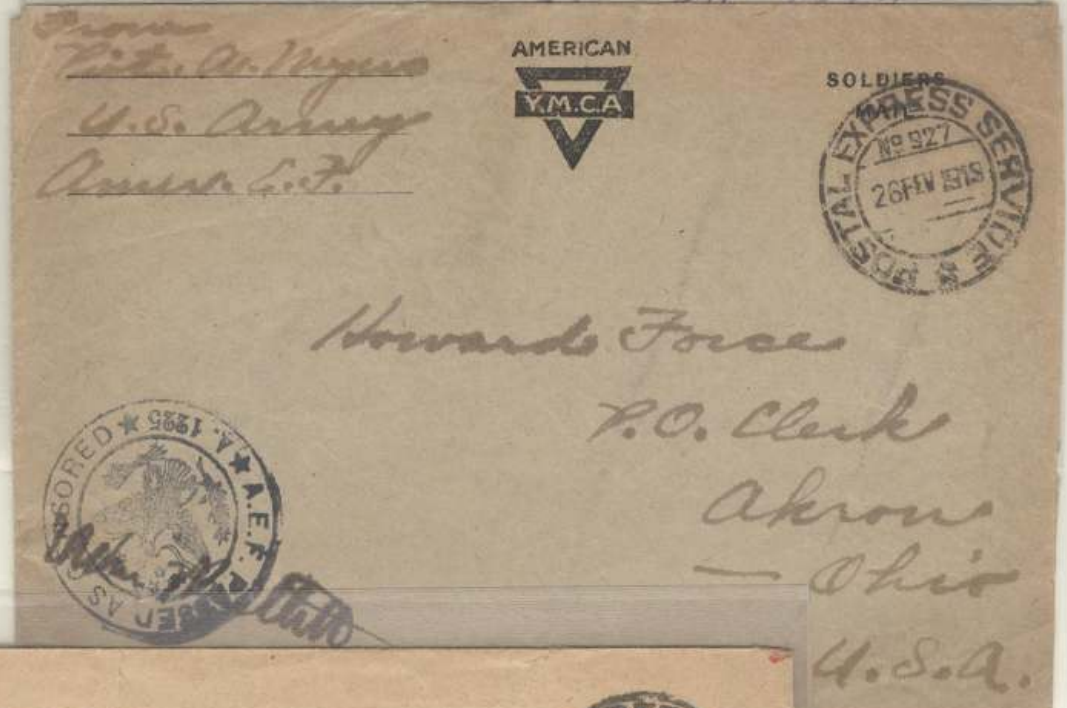 From
A. Myers
U.S. Army
Amer. E.F.
AMERICAN
Y.M.C.A
SOLDIERS
MAIL
POSTAL EXPRESS SERVICE
No 927
26 FEV 1918
Howard Force
P.O. Clerk
Akron
— Ohio
U.S.A.
A.E.F. PASSED AS CENSORED
A. 1225